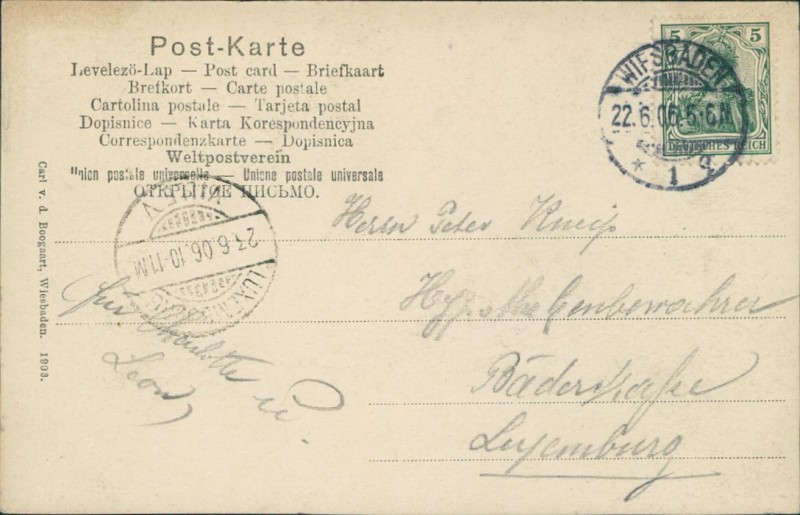 Post-Karte
Levelezö-Lap — Post card — Briefkaart
Brefkort — Carte postale
Cartolina postale — Tarjeta postal
Dopisnice — Karta Korespondencyjna
Correspondenzkarte — Dopisnica
Weltpostverein
Union postale universelle — Unione postale universale
ОТКРЫТОЕ ПИСЬМО.
5 5
DEUTSCHES REICH
WIESBADEN
22.6.06.
* 1
23.6.06.10-11.M
LUXEMBURG
Herrn Peter Kneip
Hypothekenbewahrer
Bäderstraße
Luxemburg
Charlotte u.
Leon
Carl v. d. Boogaart, Wiesbaden. 1903.